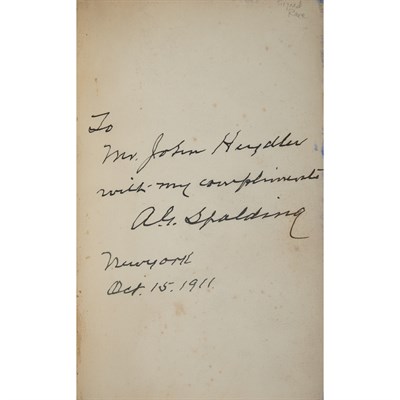 To
Mr. John Heydler
with my compliments
A.G. Spalding
Newyork
Oct. 15. 1911